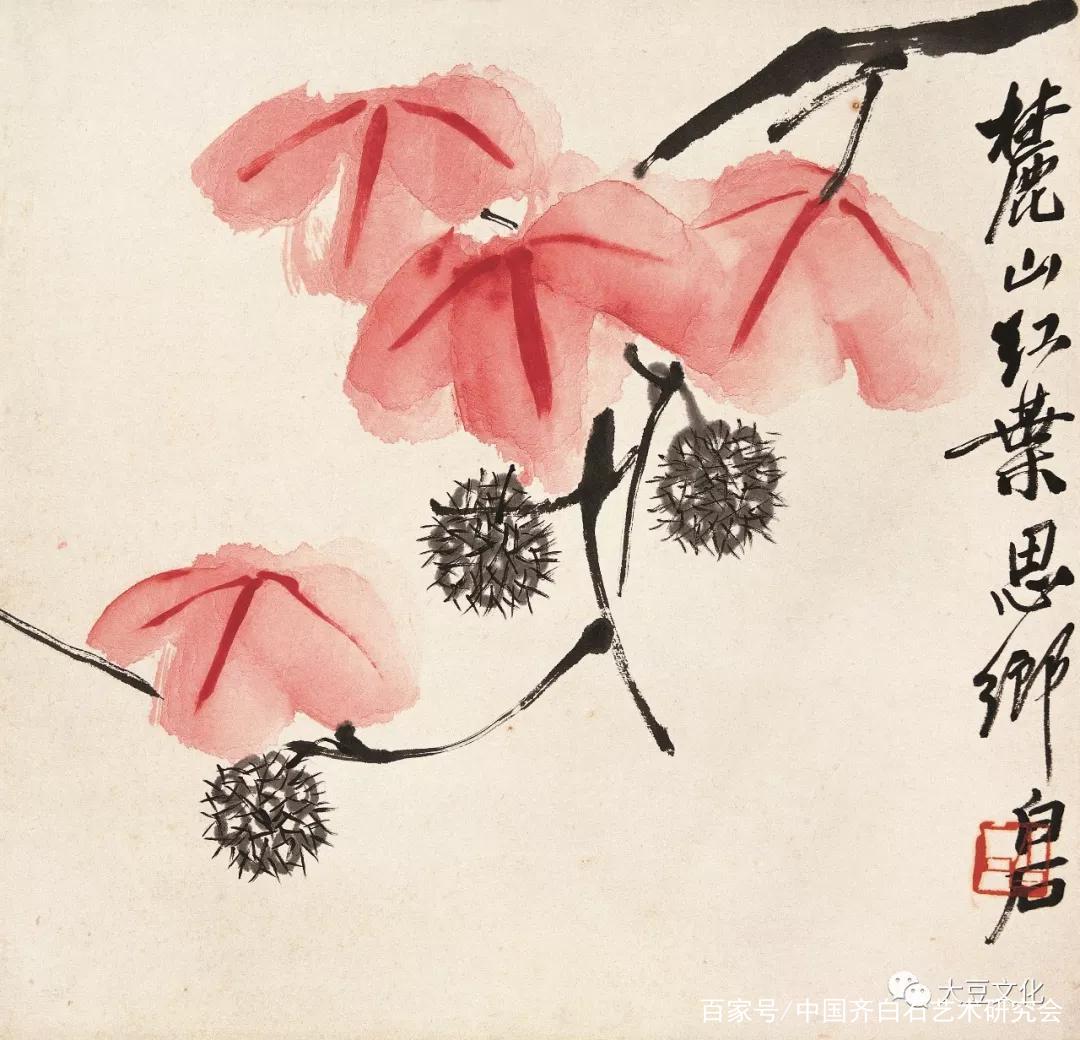 麓山红葉思鄉白石
大豆文化
百家号/中国齐白石艺术研究会